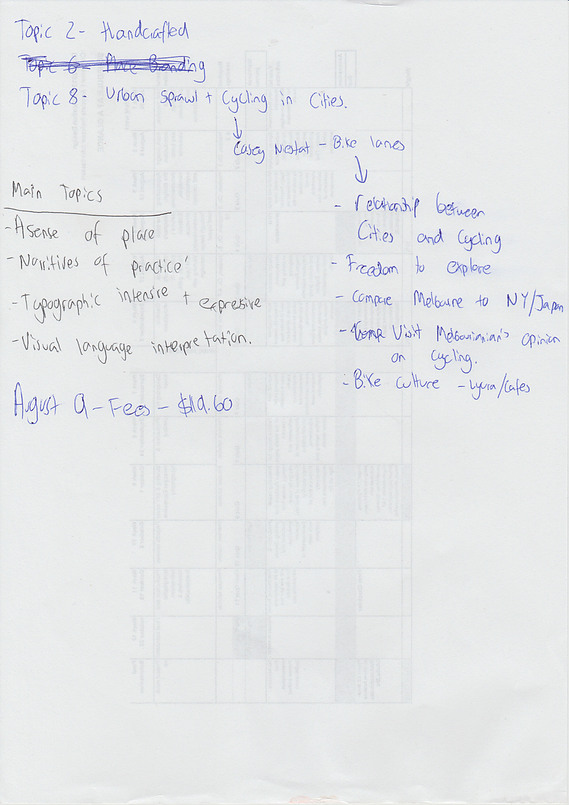 Topic 2 - Handcrafted
Topic 6 - Place Branding
Topic 8 - Urban Sprawl + Cycling in Cities.
Casey Niestat - Bike lanes
Main Topics
- A sense of place
- Narritives of practice'
- Typographic intensive + expresive
- Visual language interpretation.
August 9 - Fees - $119.60
- relationship between
Cities and Cycling
- Freedom to explore
- Compare Melbourne to NY/Japan
- Visit Melbournian's opinion
on Cycling.
- Bike culture - Lycra/Cafes